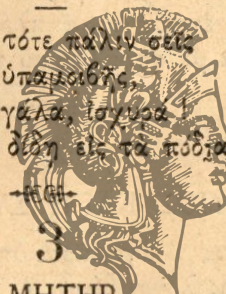 τότε πάλιν σεῖς
ὑπαμοιβῆς,
γάλα, ἰσχυρά!
δίδῃ εἰς τὰ πόδια
3
ΜΗΤΗΡ